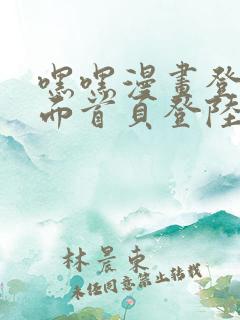 嘿嘿漫畫登
而首頁登陸
林晨東
未经同意禁止转载